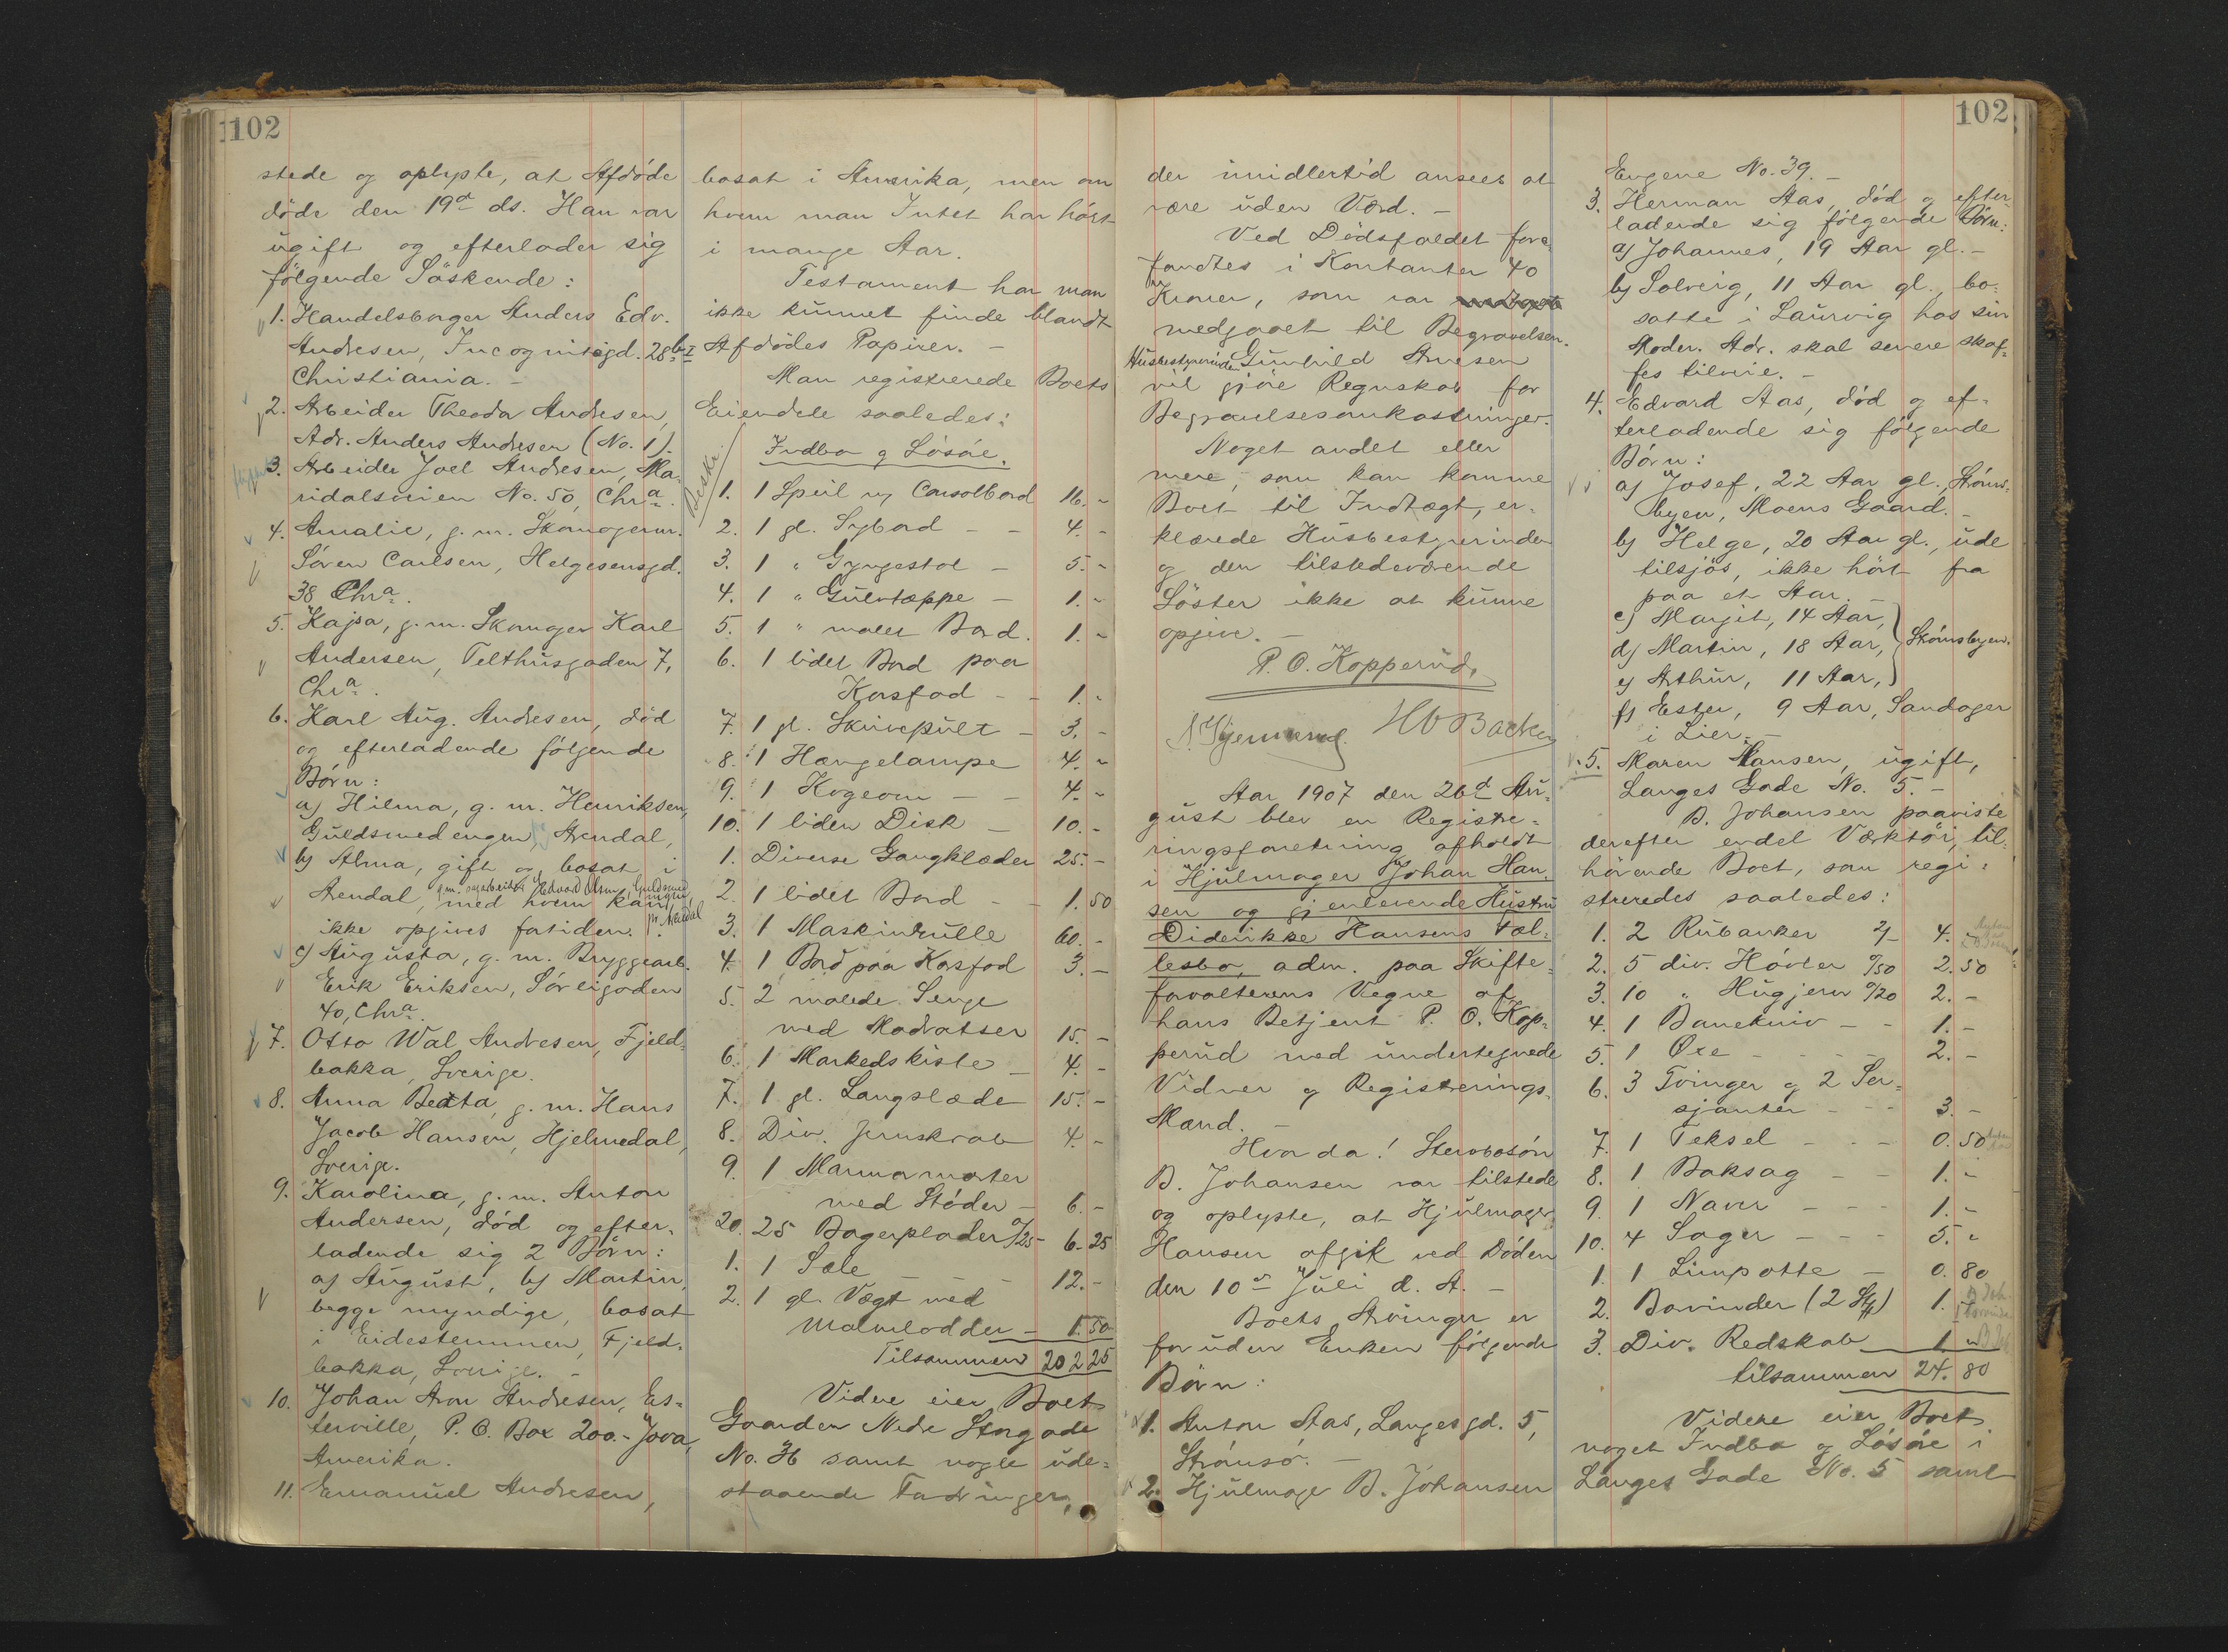 102
stede og oplyste, at Afdöde
döde den 19d ds. Han var
ugift og efterlader sig
følgende Söskende:
1. Handelsborger Anders Edv.
Andresen, Incognitogd. 28 b I
Christiania. -
2. Arbeider Theodor Andresen,
Adr. Anders Andresen (No. 1).
3. Arbeider Joel Andresen, Ma-
ridalsveien No. 50, Chra.
4. Amalie, g. m. Skomagerm.
Sören Carlsen, Helgesensgd.
38 Chra.
5. Kajsa, g. m. Skomager Karl
Andersen, Telthusgaden 7,
Chra.
6. Karl Aug. Andresen, död
og efterladende følgende
Börn:
a) Hilma, g. m. Henriksen,
Guldsmedengen, Arendal,
b) Alma, gift og bosat i
Arendal, med hvem kan
ikke opgives fortiden.
c) Augusta, g. m. Bryggearb.
Erik Eriksen, Sörligaden
40, Chra.
7. Otto Wal Andresen, Fjeld-
bakka, Sverige.
8. Anna Beata, g. m. Hans
Jacob Hansen, Hjelmedal,
Sverige.
9. Karolina, g. m. Anton
Andersen, död og efter-
ladende sig 2 Börn:
a) August, b) Martin,
begge myndige, bosat
i Eidestemmen, Fjeld-
bakka, Sverige. -
10. Johan Aron Andresen, Es-
terville, P. O. Box 200. - Jova,
Amerika.
11. Emanuel Andresen,
bosat i Amerika, men om
hvem man Intet har hört
i mange Aar.
Testament har man
ikke kunnet finde blandt
Afdödes Papirer. -
Man registrerede Boets
Eiendele saaledes:
Indbo og Lösöre.
1. 1 Speil og Consolbord 16. -
2. 1 gl. Sybord - - 4. -
3. 1 " Gyngestol - 5. -
4. 1 " Gulvtæppe - 1. -
5. 1 " malet Bord. 1. -
6. 1 lidet Bord paa
Korsfod - - 1. -
7. 1 gl. Skrivepult - 3. -
8. 1 Hængelampe 4. -
9. 1 Kogeovn - - 4. -
10. 1 liden Disk - 10. -
1. Diverse Gangklæder 25. -
2. 1 lidet Bord - - 1. 50
3. 1 Maskinrulle 60. -
4. 1 Bord paa Korsfod 3. -
5. 2 malede Senge
med Madratser 15. -
6. 1 Markedskiste - 4. -
7. 1 gl. Langslæde 15. -
8. Div. Jernskrab 4. -
9. 1 Marmormorter
med Stöder - 6. -
20. 25 Bagerplader a/25 - 6. 25
1. 1 Sele - - 12. -
2. 1 gl. Vægt med
Malmlodder - 1. 50
Tilsammen 202 25
Videre eier Boet
Gaarden Nedre Storgade
No. 36 samt nogle ude-
staaende Fordringer,
102
der imidlertid ansees at
være uden Værd. -
Ved Dödsfaldet fore-
fandtes i Kontanter 40
Kroner, som var
medgaaet til Begravelsen.
Husbestyrerinden Gunhild Arnesen
vil gjöre Regnskab for
Begravelsesomkostninger.
Noget andet eller
mere, som kan komme
Boet til Indtægt, er-
klærede Husbestyrerinden
og den tilstedeværende
Söster ikke at kunne
opgive. -
P. O. Kopperud.
HO Backen
Aar 1907 den 26d Au-
gust blev en Registre-
ringsforretning afholdt
i Hjulmager Johan Han-
sen og gjenlevende Hustru
Diderikke Hansens Fæl-
lesbo, adm. paa Skifte-
forvalterens Vegne af
hans Betjent P. O. Kop-
perud med undertegnede
Vidner og Registrerings-
Mænd. -
Hvorda! Stervbosön
B. Johansen var tilstede
og oplyste, at Hjulmager
Hansen afgik ved Döden
den 10de Juli d. A. -
Boets Arvinger er
foruden Enken følgende
Börn:
1. Anton Aas, Langesgd. 5,
Strömsö. -
2. Hjulmager B. Johansen
Engene No. 39. -
3. Herman Aas, död og efter-
ladende sig følgende Börn:
a) Johannes, 19 Aar gl. -
b) Solveig, 11 Aar gl., bo-
satte i Laurvig hos sin
Moder. Adr. skal senere skaf-
fes tilveie. -
4. Edvard Aas, död og ef-
terladende sig følgende
Börn:
a) Josef, 22 Aar gl., Ströms-
byen, Moens Gaard. -
b) Helge, 20 Aar gl., ude
tilsjös, ikke hört fra
paa et Aar. -
c) Margit, 14 Aar,
d) Martin, 18 Aar, Strömsbyen.
e) Arthur, 11 Aar,
f) Ester, 9 Aar, Sandager
i Lier. -
5. Maren Hansen, ugift,
Langes Gade No. 5. -
B. Johansen paaviste
derefter endel Værktöi, til-
hörende Boet, som regi-
streredes saaledes:
1. 2 Rubanker 2/- 4. -
2. 5 div. Høvler a/50 2. 50
3. 10 " Hugjern a/20 2. -
4. 1 Banekniv - - 1. -
5. 1 Öxe - - - - 2. -
6. 3 Tvinger og 2 Ser-
sjanter - - - 3. -
7. 1 Teksel - - - 0. 50
8. 1 Baksag - - 1. -
9. 1 Naver - - - 1. -
10. 4 Sager - - - 5. -
1. 1 Limpotte - 0. 80
2. Borvinder (2 Stk) 1. -
3. Div. Redskab 1 -
tilsammen 24. 80
Videre eier Boet
noget Indbo og Lösöre i
Langes Gade No. 5 samt